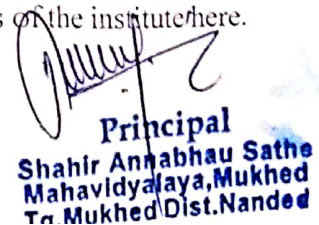 s of the institute here.
Principal
Shahir Annabhau Sathe
Mahavidyalaya,Mukhed
Tq.Mukhed Dist.Nanded